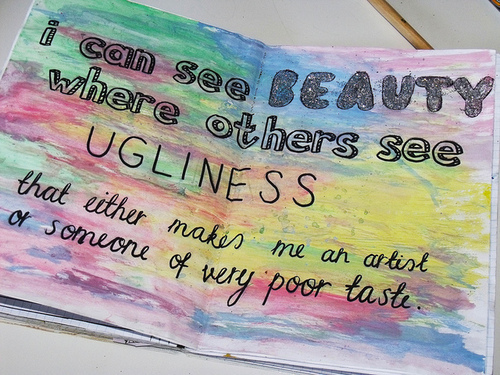 i can see BEAUTY
where others see
UGLINESS
that either makes me an artist
or someone of very poor taste.